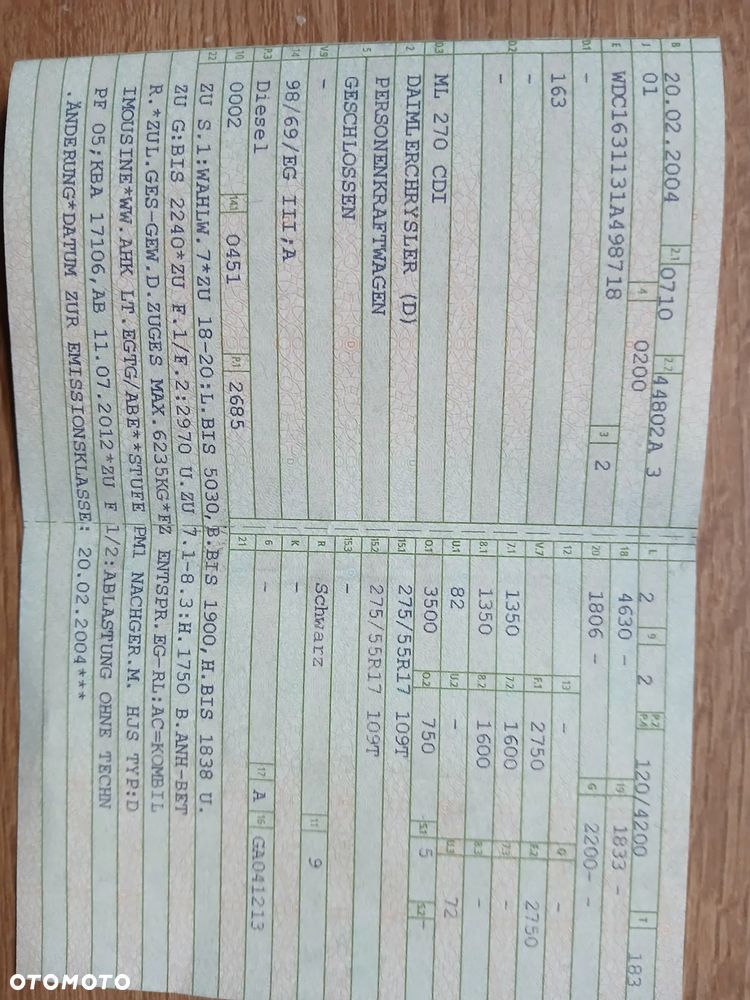 B 20.02.2004 2.1 0710 2.2 44802A 3
J 01 4 0200
E WDC1631131A498718 3 2
D.1 -
163
D.2 -
-
D.3 ML 270 CDI
2 DAIMLERCHRYSLER (D)
5 PERSONENKRAFTWAGEN
GESCHLOSSEN
V.9 -
14 98/69/EG III;A
P.3 Diesel
10 0002 14.1 0451 P.1 2685
22 ZU S.1:WAHLW.7*ZU 18-20:L.BIS 5030,B.BIS 1900,H.BIS 1838 U.
ZU G:BIS 2240*ZU F.1/F.2:2970 U.ZU 7.1-8.3:H.1750 B.ANH-BET
R.*ZUL.GES-GEW.D.ZUGES MAX.6235KG*FZ ENTSPR.EG-RL:AC=KOMBIL
IMOUSINE*WW.AHK LT.EGTG/ABE**STUFE PM1 NACHGER.M. HJS TYP:D
PF 05;KBA 17106,AB 11.07.2012*ZU F 1/2:ABLASTUNG OHNE TECHN
.ÄNDERUNG*DATUM ZUR EMISSIONSKLASSE: 20.02.2004***
L 2 9 2 P.2 P.4 120/4200 T 183
18 4630 - 19 1833 -
20 1806 - G 2200- -
12 13 - Q -
V.7 F.1 2750 F.2 2750
7.1 1350 7.2 1600 7.3 -
8.1 1350 8.2 1600 8.3 -
U.1 82 U.2 - U.3 72
O.1 3500 O.2 750 S.1 5 S.2 -
15.1 275/55R17 109T
15.2 275/55R17 109T
15.3 -
R Schwarz 11 9
K -
6 - 17 A 16 GA041213
21
OTOMOTO